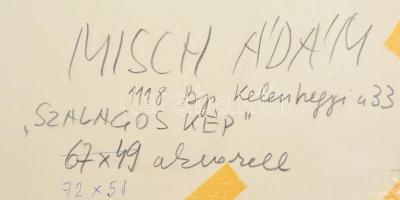 MISCH ÁDÁM
1118 Bp, Kelenhegyi u 33
"SZALAGOS KÉP"
67 x 49 akvarell
72 x 51